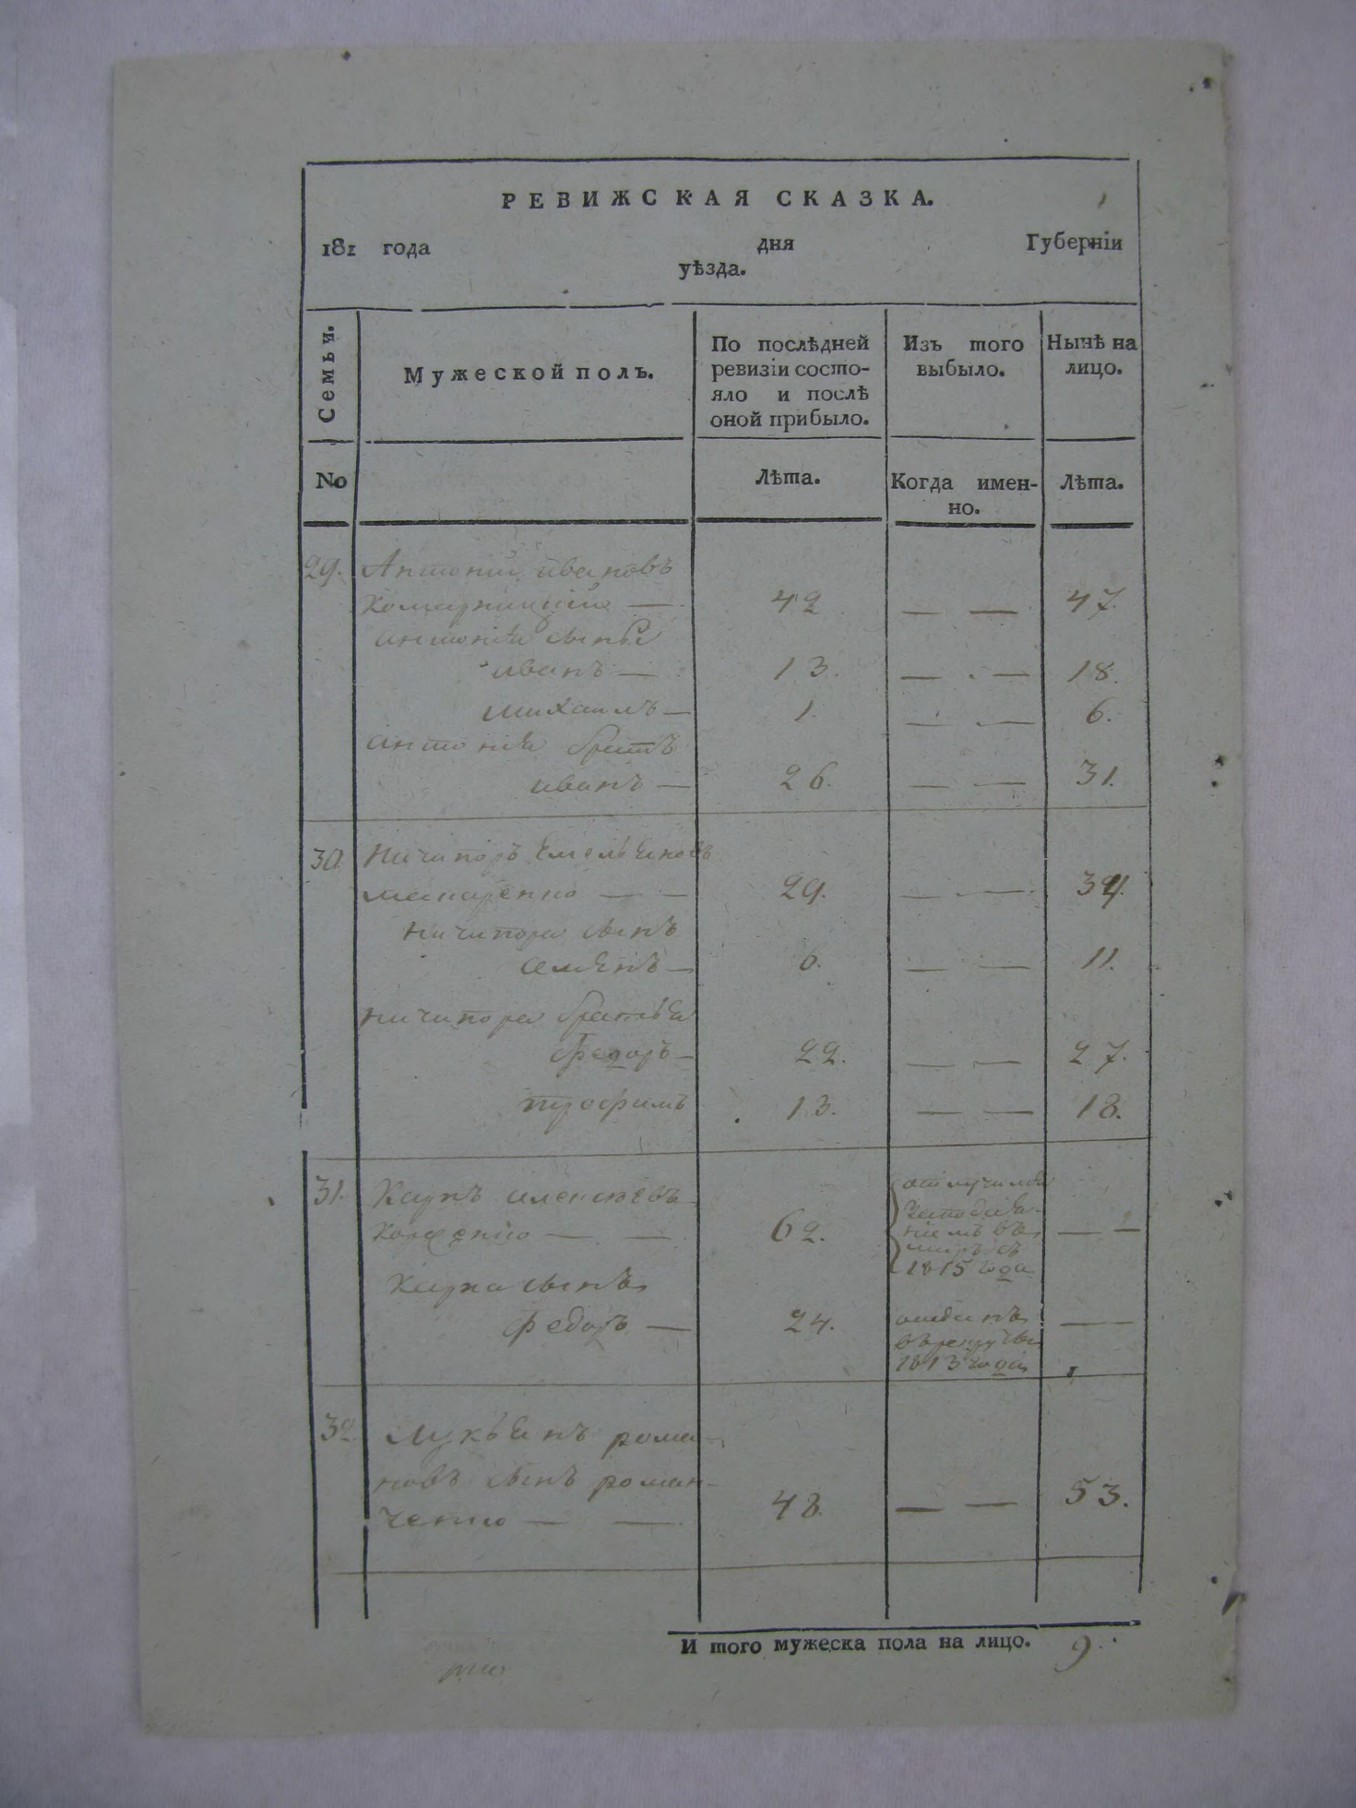 РЕВИЖСКАЯ СКАЗКА.
181 года дня Губерніи
уѣзда.
Семьи.
Мужеской полъ.
По послѣдней
ревизіи состо-
яло и послѣ
оной прибыло.
Изъ того
выбыло.
Нынѣ на
лицо.
No
Лѣта.
Когда имен-
но.
Лѣта.
29. Антоній ивановъ
— 42 — — 47.
антонія сынья
иванъ — 13. — — 18.
михаилъ — 1. — — 6.
антонія братъ
иванъ — 26. — — 31.
30. Ничипоръ Емельяновъ
макаренко — — 29. — — 34.
Ничипора сынъ
семенъ — 6. — — 11.
ничипора братья
федоръ — 22. — — 27.
трофимъ 13. — — 18.
31. Карпъ алексѣевъ
— — 62. — —
1815 года
Карпа сынъ
Федоръ — 24. отданъ — —
въ рекруты
1813 года
32. Лукьянъ рома-
новъ сынъ роман-
ченко — — 48. — — 53.
И того мужеска пола на лицо. 9.